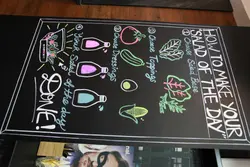 HOW TO MAKE YOUR
SALAD OF THE DAY
① Choose Salad Base
② Choose Topping
③ Choose Dressings
④ Your Salad of the day
DONE!